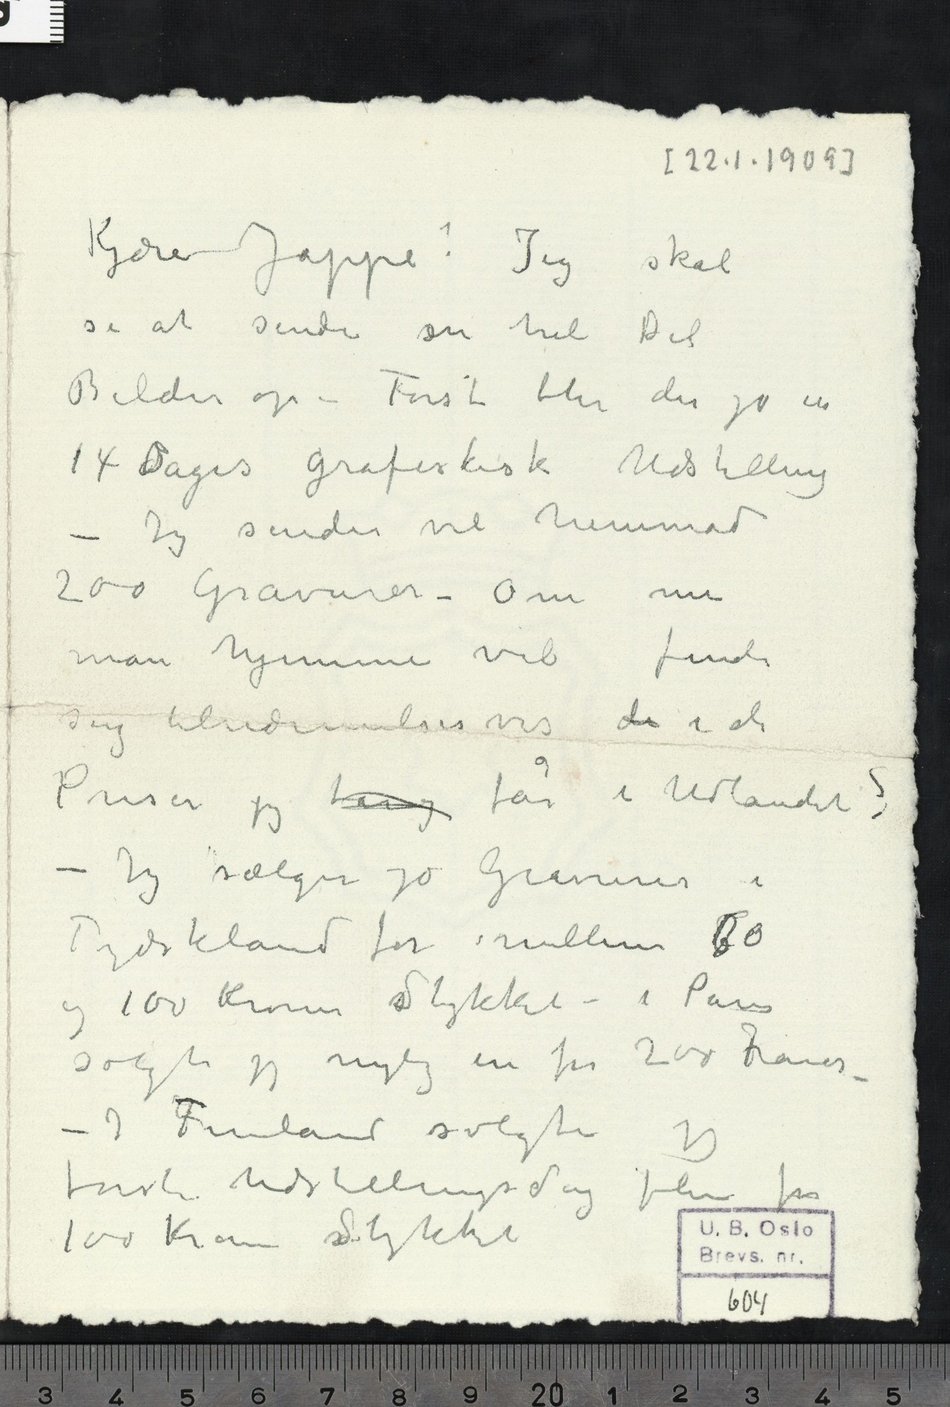 [22.1.1909]
Kjære Jappe! Jeg skal
se at sende en hel Del
Billeder op – Først blir der jo en
14 Dages grafistisk Udstilling
– Jeg sender vel henimod
200 Gravurer – Om nu
man hjemme vil finde
sig tilnærmelsesvis de i de
Priser jeg får i Udlandet?
– Jeg sælger jo Gravurer i
Tydskland for imellem 60
og 100 Kroner Stykket – i Paris
solgte jeg nylig en for 200 Francs –
– I Finland solgte jeg
første Udstillingsdag flere for
100 Kroner Stykket
U. B. Oslo
Brevs. nr.
604
3 4 5 6 7 8 9 20 1 2 3 4 5